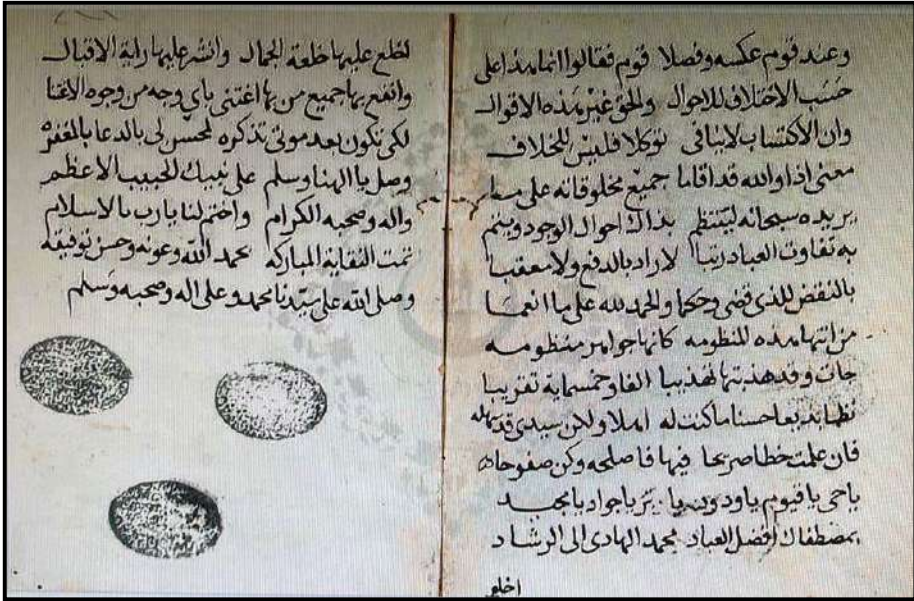 وعند قوم عكسه وفصلا قوم فقالوا انما هذا على
حسب الاختلاف للاحوال والحق غير هذه الاقوال
وان الاكتساب لاينافى توكلا فليس للخلاف
معنى اذا والله قد اقاما جميع مخلوقاته على ما
يريده سبحانه لينتظم بذاك احوال الوجود ويتم
به تفاوت العباد رتبا لا راد بالدفع ولا معقبا
بالنقض للذى قضى وحكما والحمد لله على ما انعما
من انتها هذه المنظومه كانها جواهر منظومه
جات وقد هذبتها تهذيبا الفا وخمسماية تقريبا
نظما بديعا حسنا ما كنت له املا ولكن سيدى قد
فان علمت خطا صريحا فيها فاصلحه وكن صفوحا
ياحى ياقيوم ياودود يابر ياجواد يامجيد
بمصطفاك افضل العباد محمد الهادى الى الرشاد
اخلع
لخلع عليها خلعة الجمال وانشر عليها راية الاقبال
وانفع بها جميع من بها اغتنى باي وجه من وجوه الاغتنا
لكى تكون بعد موتى تذكره لمحسن لى بالدعا بالمغفره
وصل يا الهنا وسلم على نبيك الحبيب الاعظم
واله وصحبه الكرام واختم لنا يارب بالاسلام
تمت النقاية المباركه بحمد الله وعونه وحسن توفيقه
وصلى الله على سيدنا محمد وعلى اله وصحبه وسلم